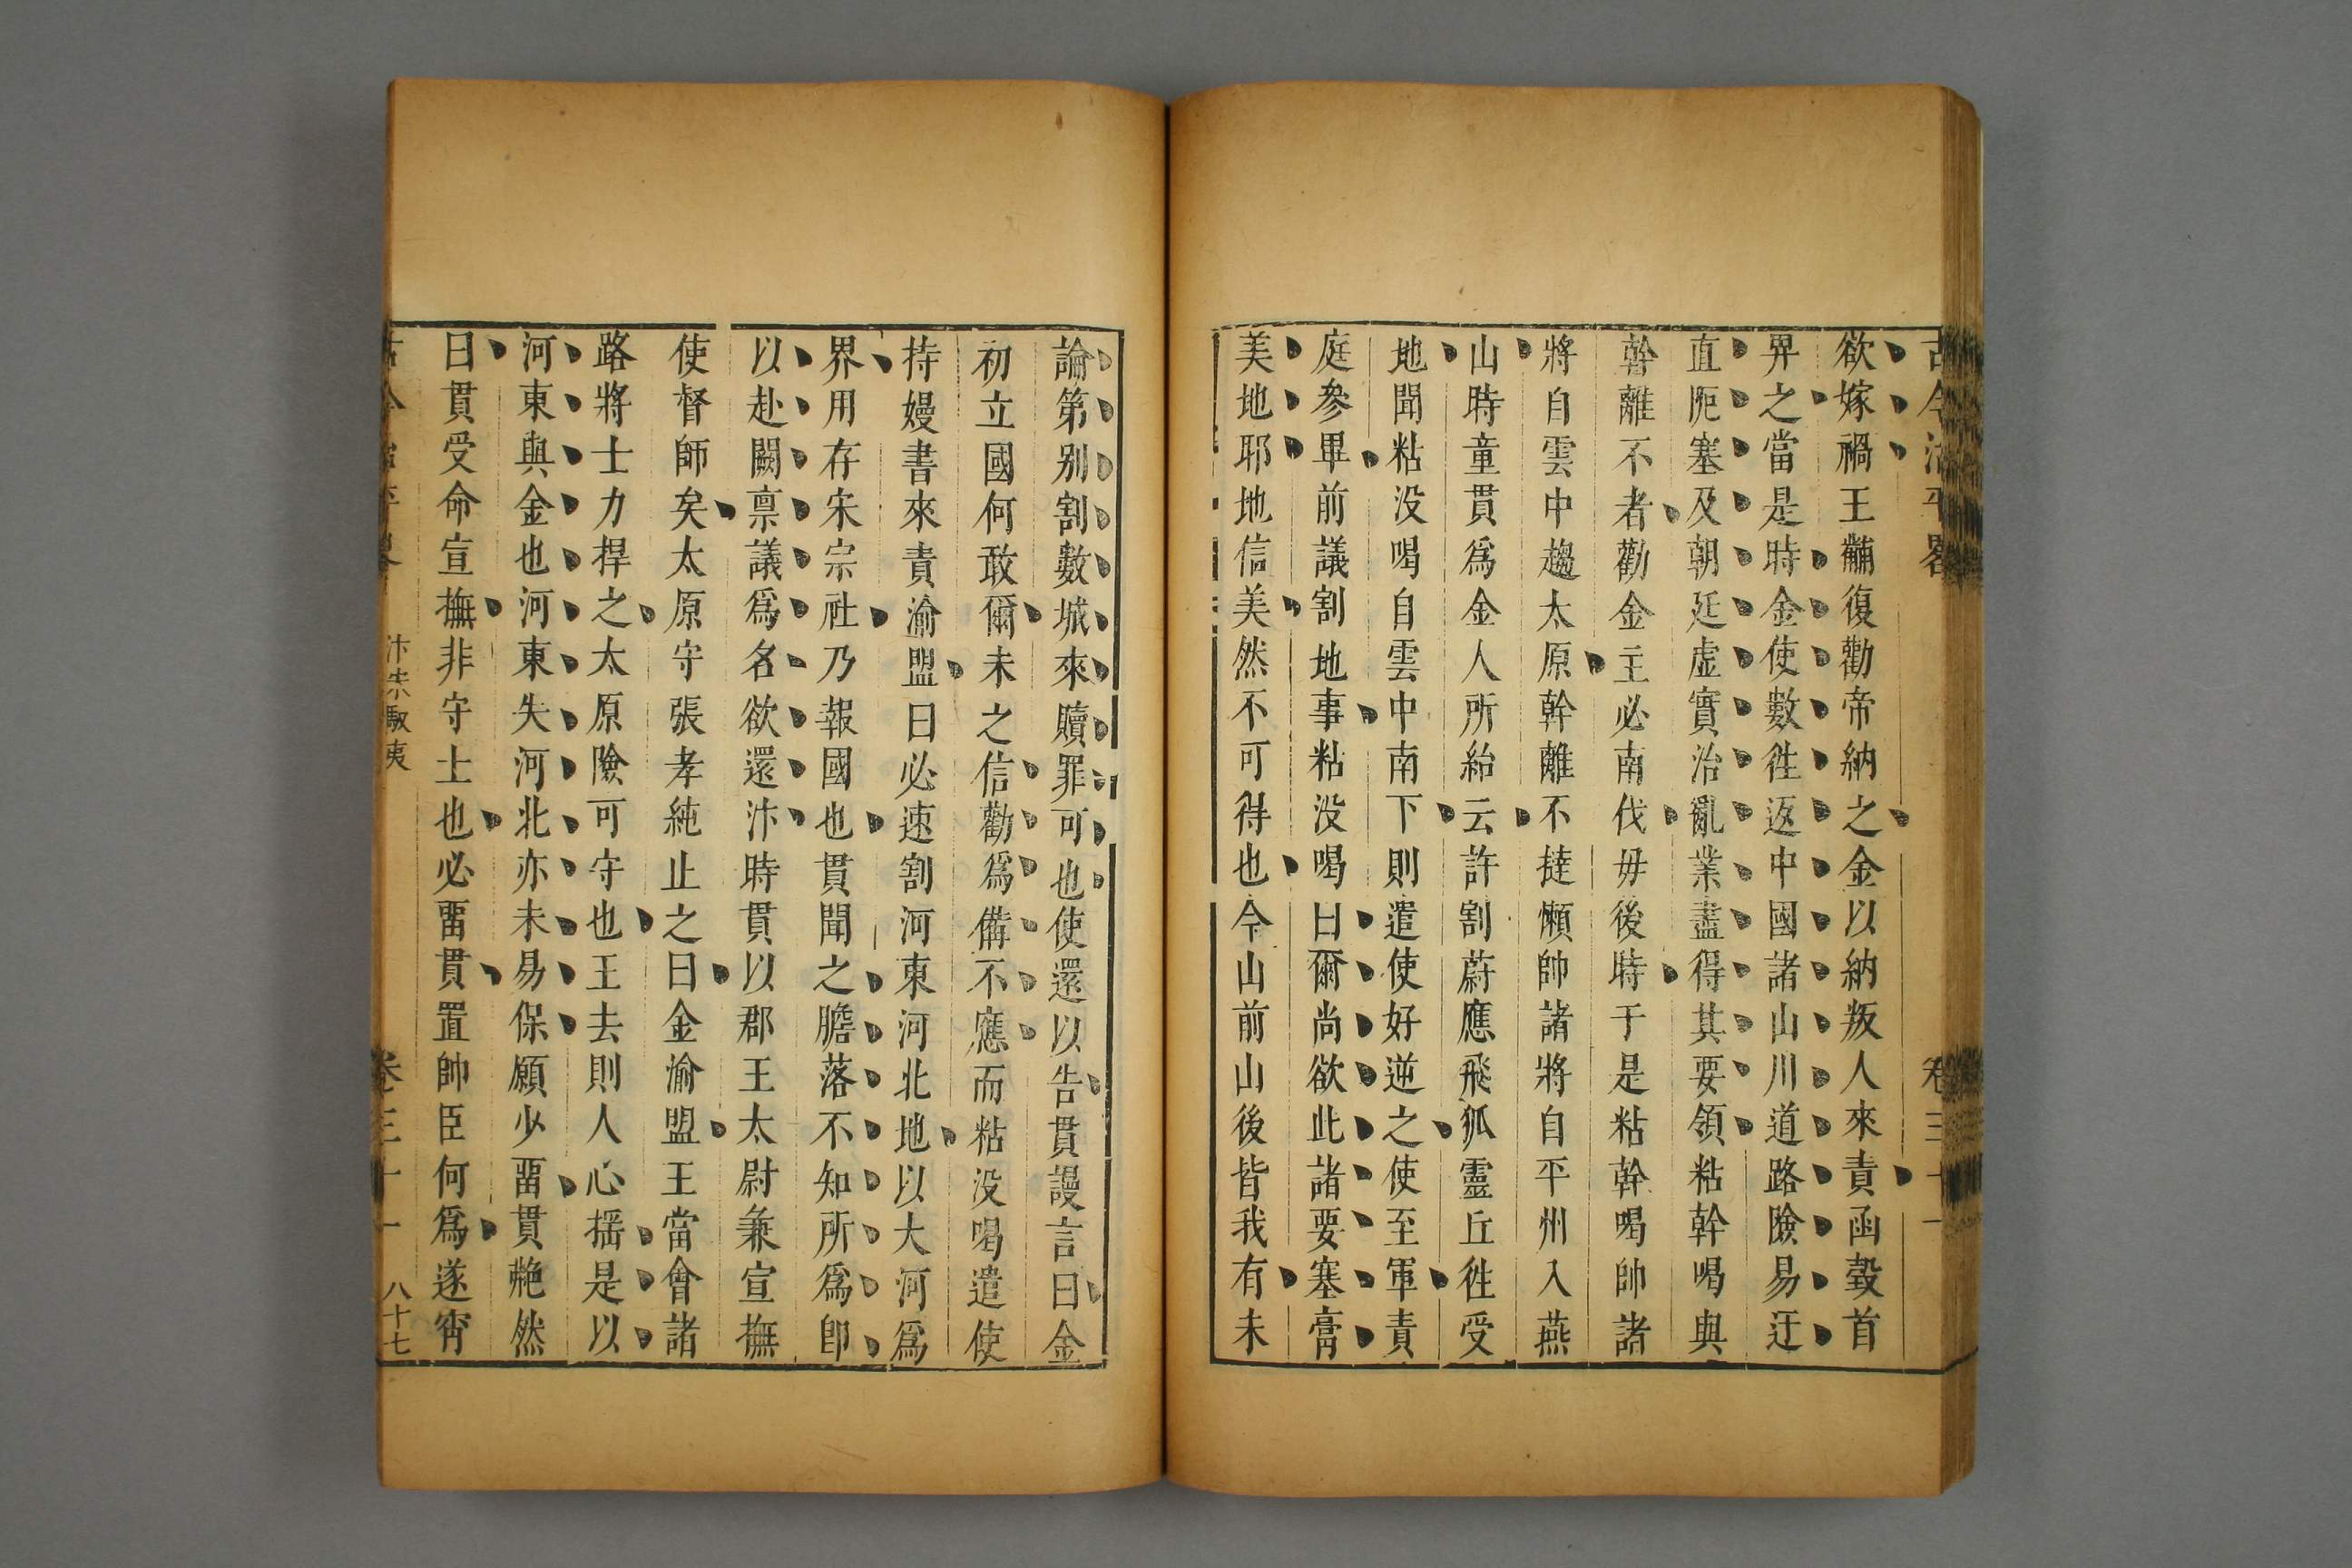 古今治平畧 卷三十一
欲嫁禍王黼復勸帝納之金以納叛人來責函㲉首
畀之當是時金使數徃返中國諸山川道路險易迂
直阨塞及朝廷虛實治亂業盡得其要領粘幹喝與
幹離不者勸金主必南伐毋後時于是粘幹喝帥諸
將自雲中趨太原幹離不撻懶帥諸將自平州入燕
山時童貫爲金人所紿云許割蔚應飛狐靈丘徃受
地聞粘没喝自雲中南下則遣使好逆之使至軍責
庭參畢前議割地事粘没喝曰爾尚欲此諸要塞膏
美地耶地信美然不可得也今山前山後皆我有未
論第别割數城來贖罪可也使還以告貫謾言曰金
初立國何敢爾未之信勸爲備不應而粘没喝遣使
持嫚書來責渝盟曰必速割河東河北地以大河爲
界用存宋宗社乃報國也貫聞之膽落不知所爲卽
以赴闕禀議爲名欲還汴時貫以郡王太尉兼宣撫
使督師矣太原守張孝純止之曰金渝盟王當會諸
路將士力捍之太原險可守也王去則人心揺是以
河東與金也河東失河北亦未易保願少畱貫艴然
曰貫受命宣撫非守土也必畱貫置帥臣何爲遂宵
古今治平畧 汴宋馭夷 卷三十一 八十七